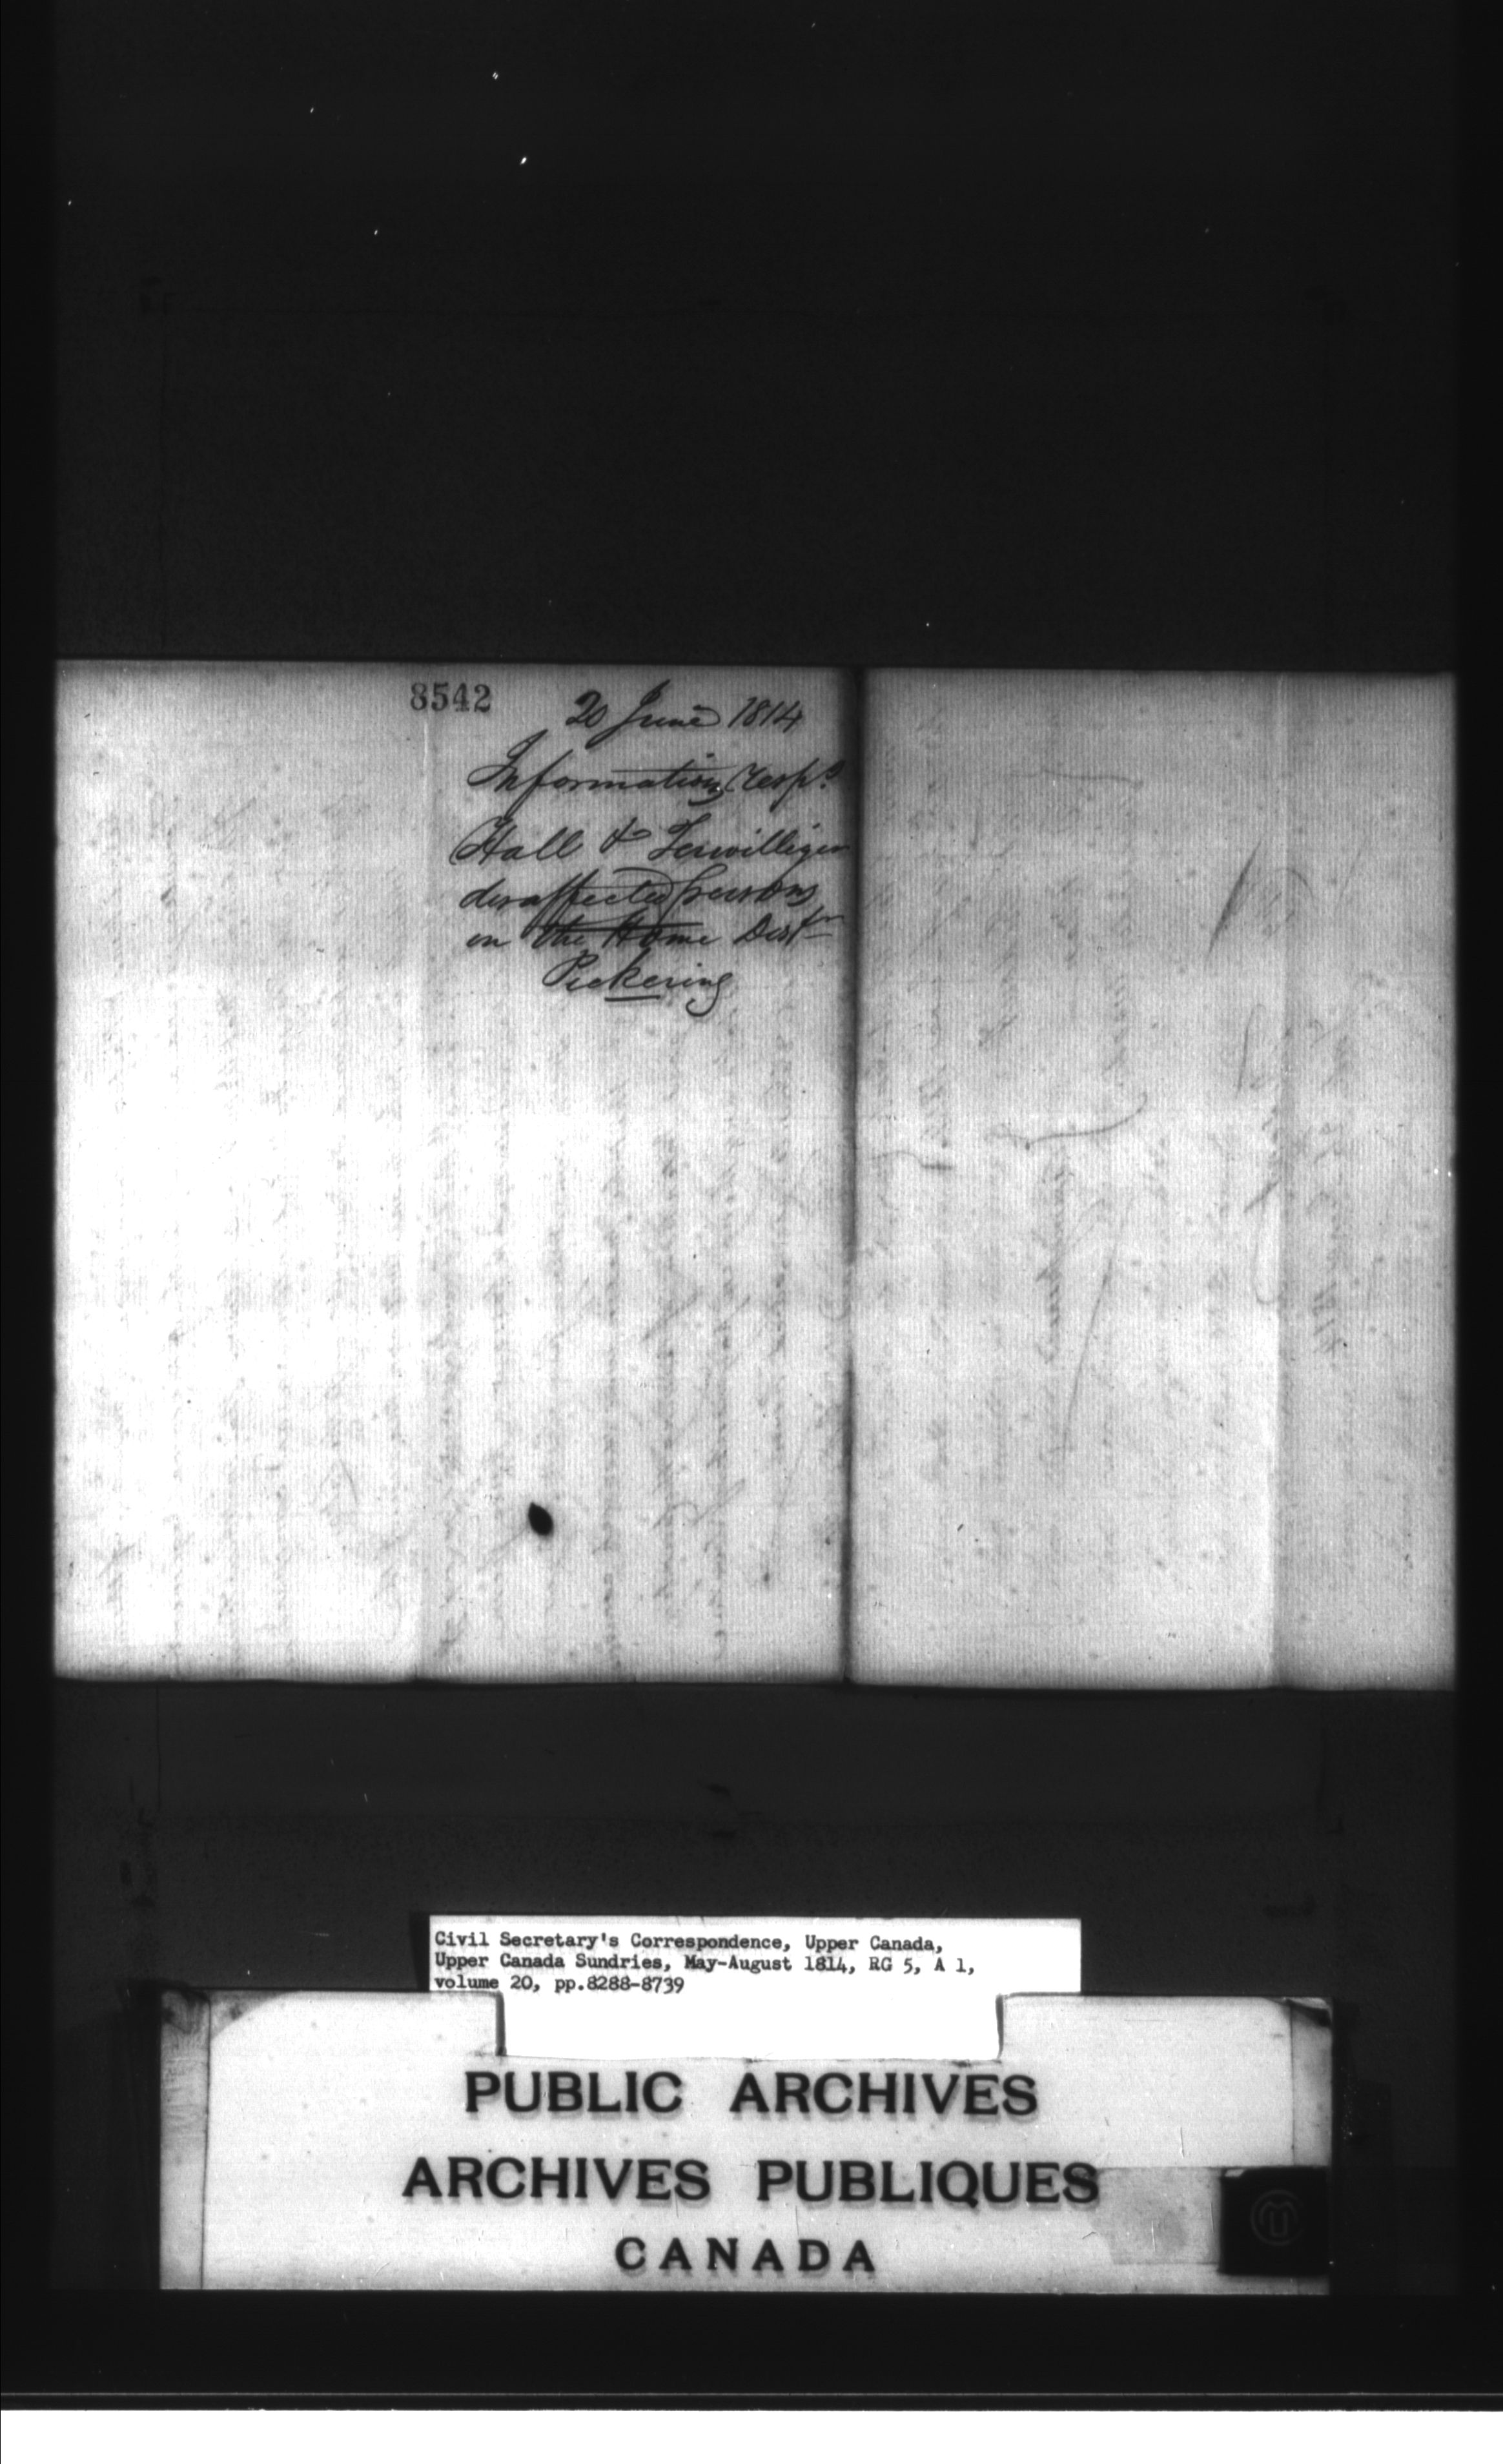 8542
20 June 1814
Information resp.g
Hall & Terwilligen
disaffected persons
in the Home Dist
Pickering
Civil Secretary's Correspondence, Upper Canada,
Upper Canada Sundries, May-August 1814, RG 5, A 1,
volume 20, pp.8288-8739
PUBLIC ARCHIVES
ARCHIVES PUBLIQUES
CANADA